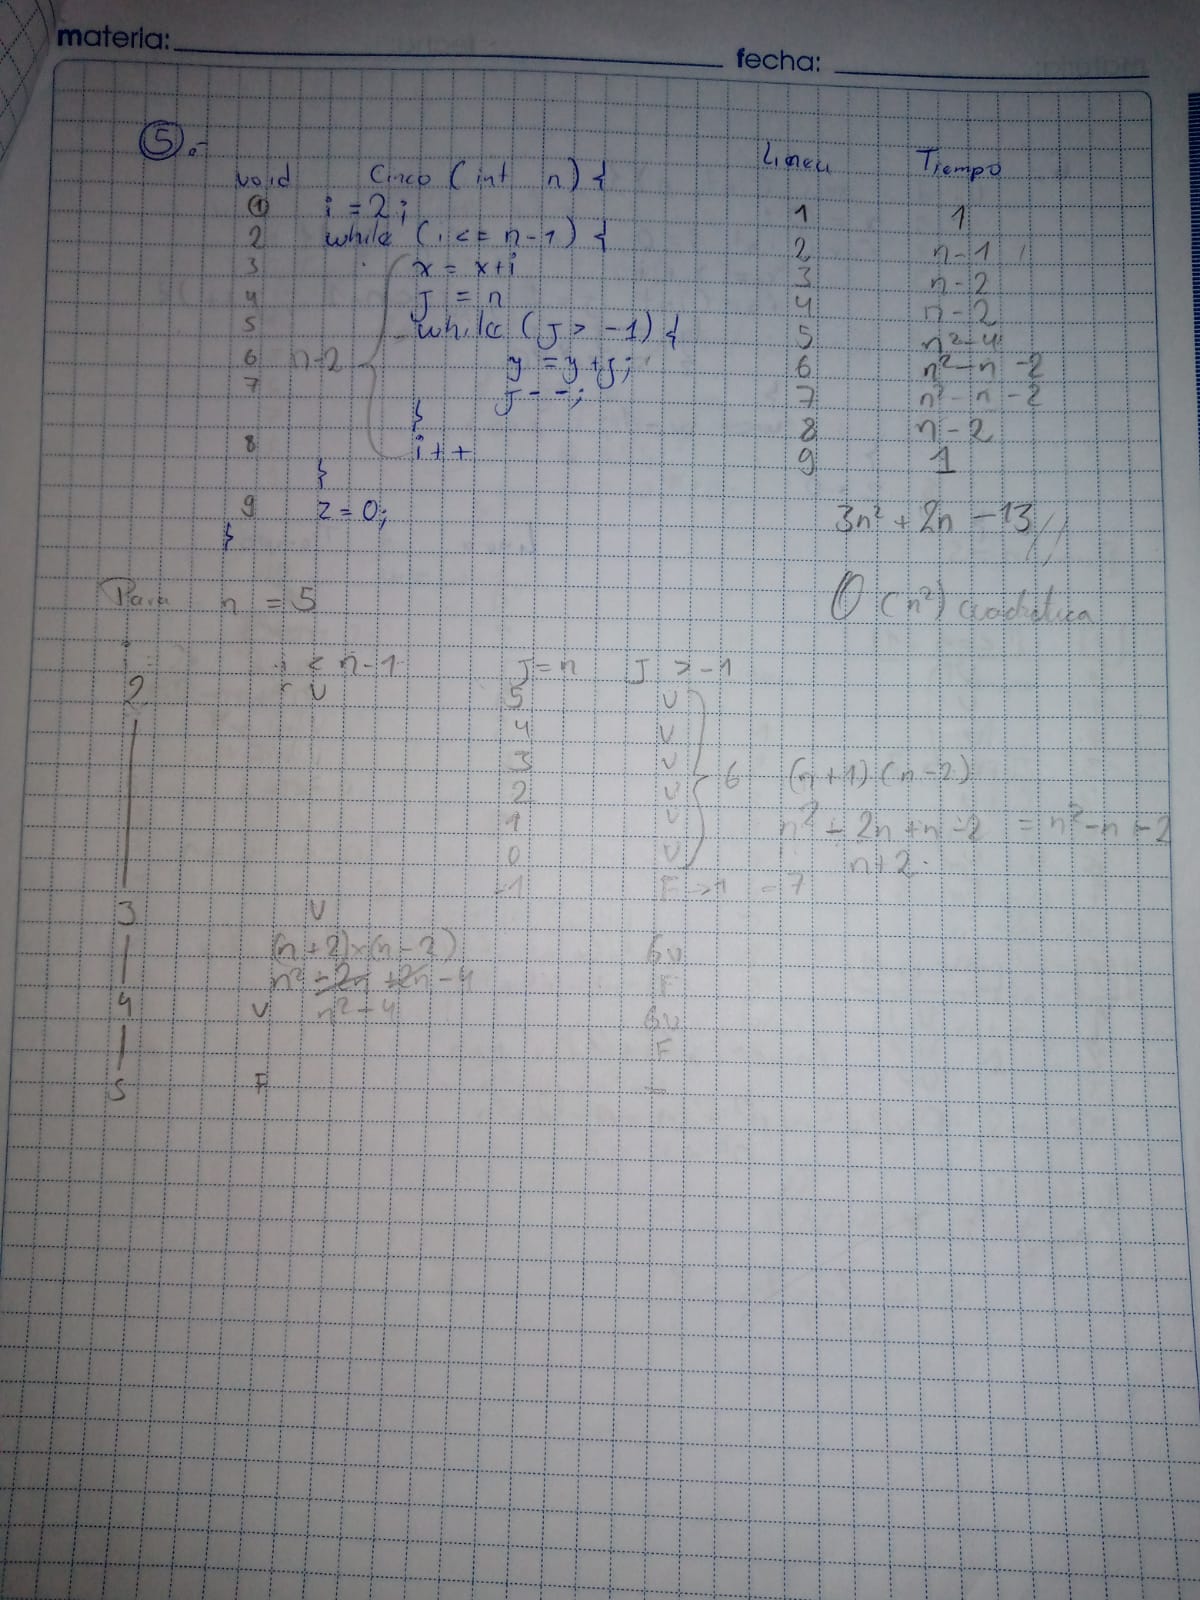 materia:
fecha:
5.-
void Cinco (int n) {
1 i = 2;
2 while (i <= n-1) {
3 x = x+i
4 J = n
5 while (J > -1) {
6 y = y+j;
7 J--;
}
8 i++
}
9 z = 0;
}
n-2
Linea Tiempo
1 1
2 n-1
3 n-2
4 n-2
5 n²-4
6 n²-n-2
7 n²-n-2
8 n-2
9 1
3n² + 2n - 13 //
O (n²) cuadratica
Para n = 5
i i < n-1 J=n J > -1
2 V 5 V
4 V
3 V
2 V
1 V
0 V
-1 F → 1 = 7
6 (n+1) (n-2)
n² - 2n + n - 2 = n² - n - 2
n+2
3 V
(n+2)x(n-2) 6v
n² - 2n + 2n - 4 F
4 V n² - 4 6v
F
5 F -